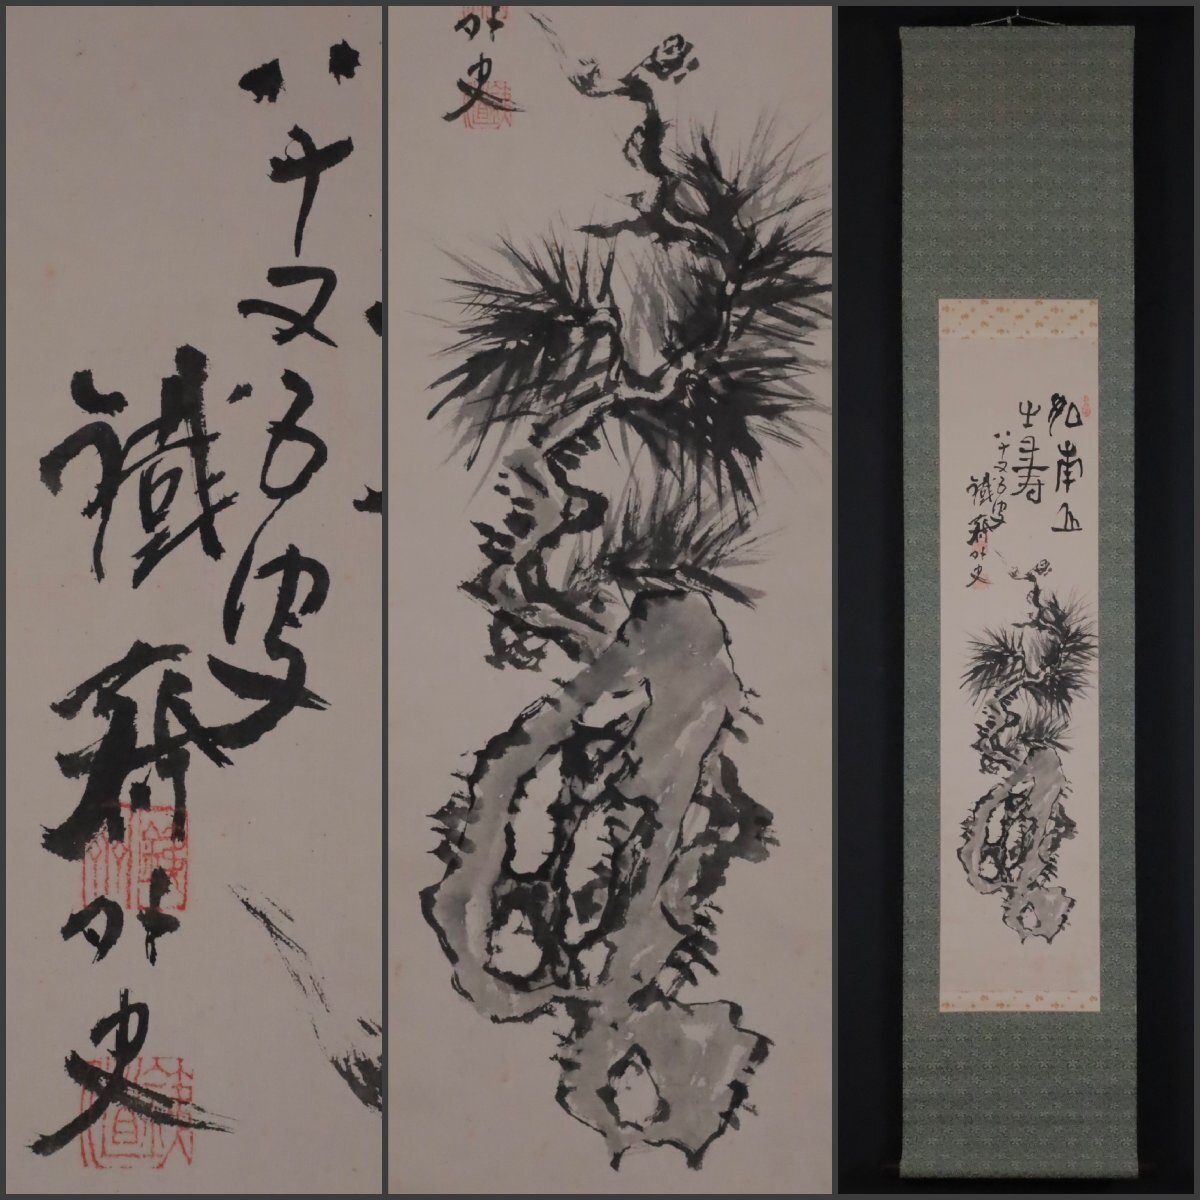 八十又五叟
鐵齋外史
外史
如南山
之寿
八十又五叟
鐵齋外史